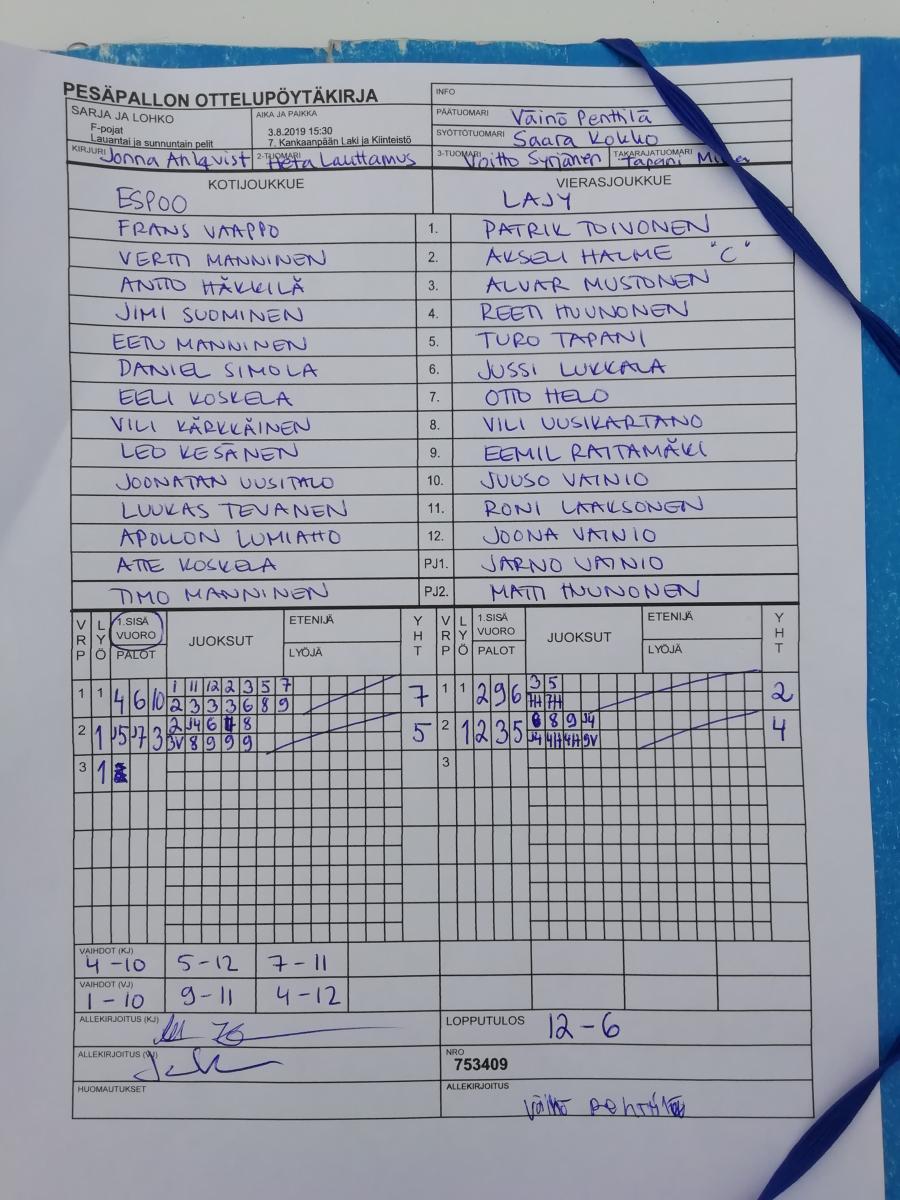 PESÄPALLON OTTELUPÖYTÄKIRJA
INFO
SARJA JA LOHKO
F-pojat
Lauantai ja sunnuntain pelit
AIKA JA PAIKKA
3.8.2019 15:30
7. Kankaanpään Laki ja Kiinteistö
PÄÄTUOMARI Väinö Penttilä
SYÖTTÖTUOMARI Saara Kokko
KIRJURI Jonna Ahlqvist 2-TUOMARI Heta Lauttamus 3-TUOMARI Voitto Syrjänen TAKARAJATUOMARI Tapani
KOTIJOUKKUE VIERASJOUKKUE
ESPOO LAJY
FRANS VAAPPO 1. PATRIK TOIVONEN
VERTTI MANNINEN 2. AKSELI HALME "C"
ANTTO HÄKKILÄ 3. ALVAR MUSTONEN
JIMI SUOMINEN 4. REETI HUUNONEN
EETU MANNINEN 5. TURO TAPANI
DANIEL SIMOLA 6. JUSSI LUKKALA
EELI KOSKELA 7. OTTO HELO
VILI KÄRKKÄINEN 8. VILI UUSIKARTANO
LEO KESÄNEN 9. EEMIL RAITAMÄKI
JOONATAN UUSITALO 10. JUUSO VAINIO
LUUKAS TEVANEN 11. RONI LAAKSONEN
APOLLON LUMIAHO 12. JOONA VAINIO
ATTE KOSKELA PJ1. JARNO VAINIO
TIMO MANNINEN PJ2. MATTI HUUNONEN
VRP LYÖ 1.SISÄ VUORO PALOT JUOKSUT ETENIJÄ LYÖJÄ YHT VRP LYÖ 1.SISÄ VUORO PALOT JUOKSUT ETENIJÄ LYÖJÄ YHT
1 1 4 6 10 1 11 12 2 3 5 7 7 1 1 2 9 6 3 5 2
2 3 3 3 6 8 9 7H 7H
2 1 J5 J7 3 2 J4 6 8 5 2 1 2 3 5 6 8 9 J4 4
3V 8 9 9 9 J4 4H 4H 9V
3 1 3
VAIHDOT (KJ)
4-10 5-12 7-11
VAIHDOT (VJ)
1-10 9-11 4-12
ALLEKIRJOITUS (KJ) LOPPUTULOS 12-6
ALLEKIRJOITUS (VJ) NRO
753409
HUOMAUTUKSET ALLEKIRJOITUS
Väinö Penttilä